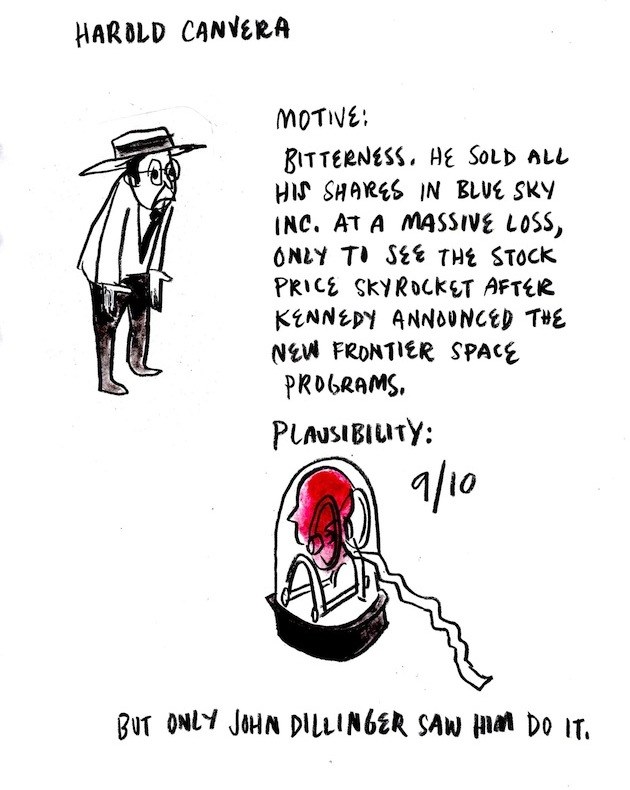 HAROLD CANVERA
MOTIVE:
BITTERNESS. HE SOLD ALL
HIS SHARES IN BLUE SKY
INC. AT A MASSIVE LOSS,
ONLY TO SEE THE STOCK
PRICE SKYROCKET AFTER
KENNEDY ANNOUNCED THE
NEW FRONTIER SPACE
PROGRAMS.
PLAUSIBILITY:
9/10
BUT ONLY JOHN DILLINGER SAW HIM DO IT.